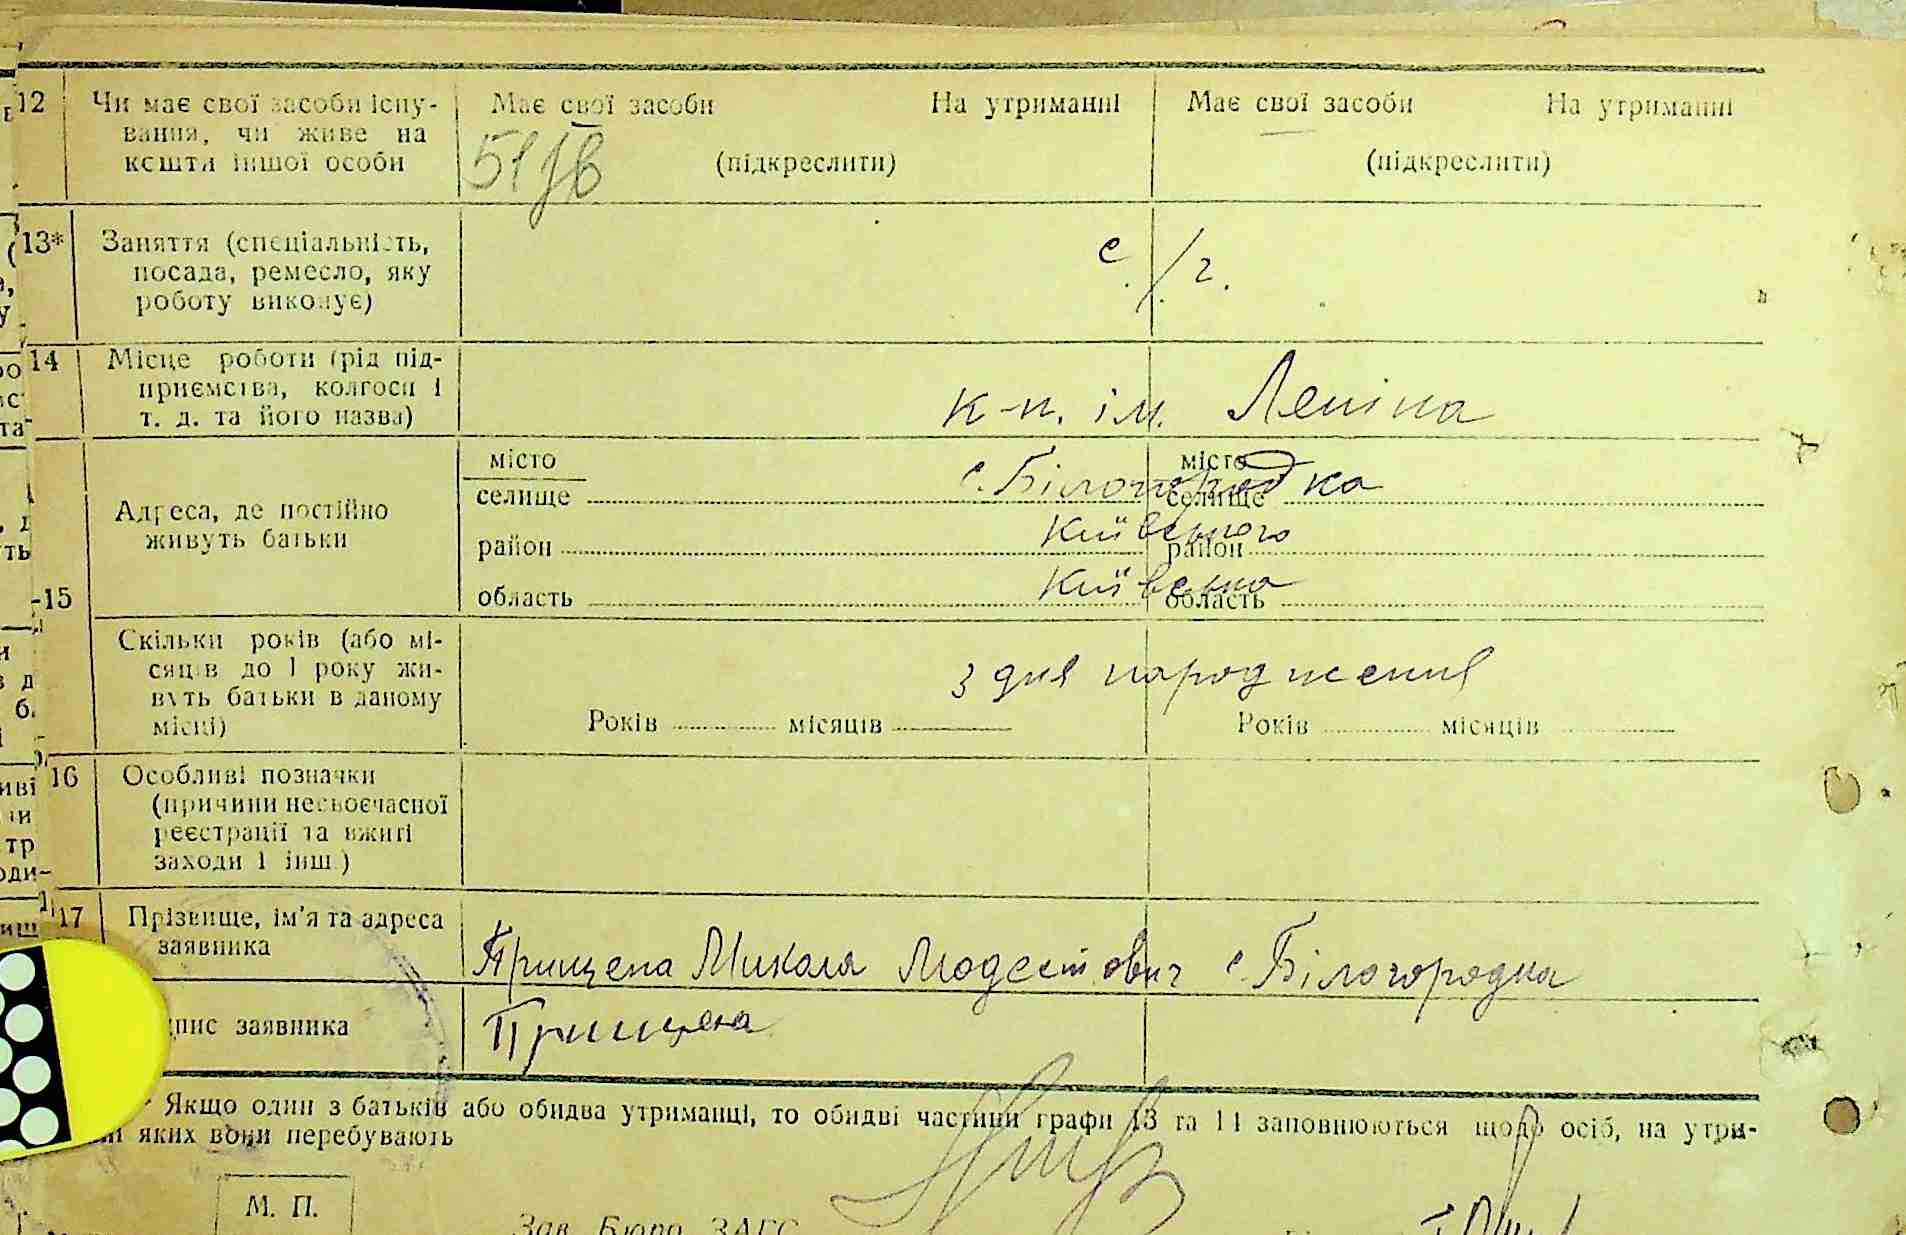 12 Чи має свої засоби існу-
вання, чи живе на
кошти іншої особи
Має свої засоби На утриманні
(підкреслити)
Має свої засоби На утриманні
(підкреслити)
13* Заняття (спеціальність,
посада, ремесло, яку
роботу виконує)
с./г.
14 Місце роботи (рід під-
приємства, колгосп і
т. д. та його назва)
к-п. ім. Леніна
15 Адреса, де постійно
живуть батьки
місто
селище
район
область
місто
селище
район
область
с. Білогородка
Київського
Київська
Скільки років (або мі-
сяців до 1 року жи-
вуть батьки в даному
місці)
з дня народження
Років місяців
Років місяців
16 Особливі позначки
(причини несвоєчасної
реєстрації та вжиті
заходи і інш.)
17 Прізвище, ім'я та адреса
заявника
Прищепа Микола Модестович с. Білогородка
дпис заявника
Прищепа
Якщо один з батьків або обидва утриманці, то обидві частини графи 13 та 14 заповнюються щодо осіб, на утри-
яких вони перебувають
М. П.
Зав. Бюро ЗАГС